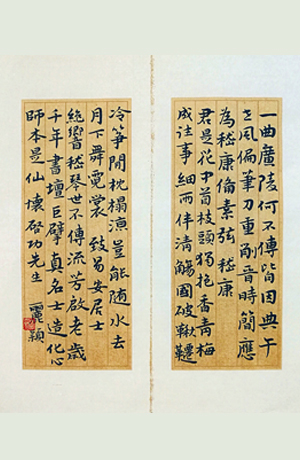 一曲廣陵何不傳皆因典午
之風偏筆刀重刪晉時簡應
為嵇康脩素弦 嵇康
君是花中首枝頭獨抱香青梅
成往事細雨伴清觴國破鞦韆
冷箏閒枕榻涼豈能隨水去
月下舞霓裳 致易安居士
絕響嵇琴世不傳流芳啟老歲
千年書壇巨擘真名士造化心
師本是仙 懷啓功先生 麗穎